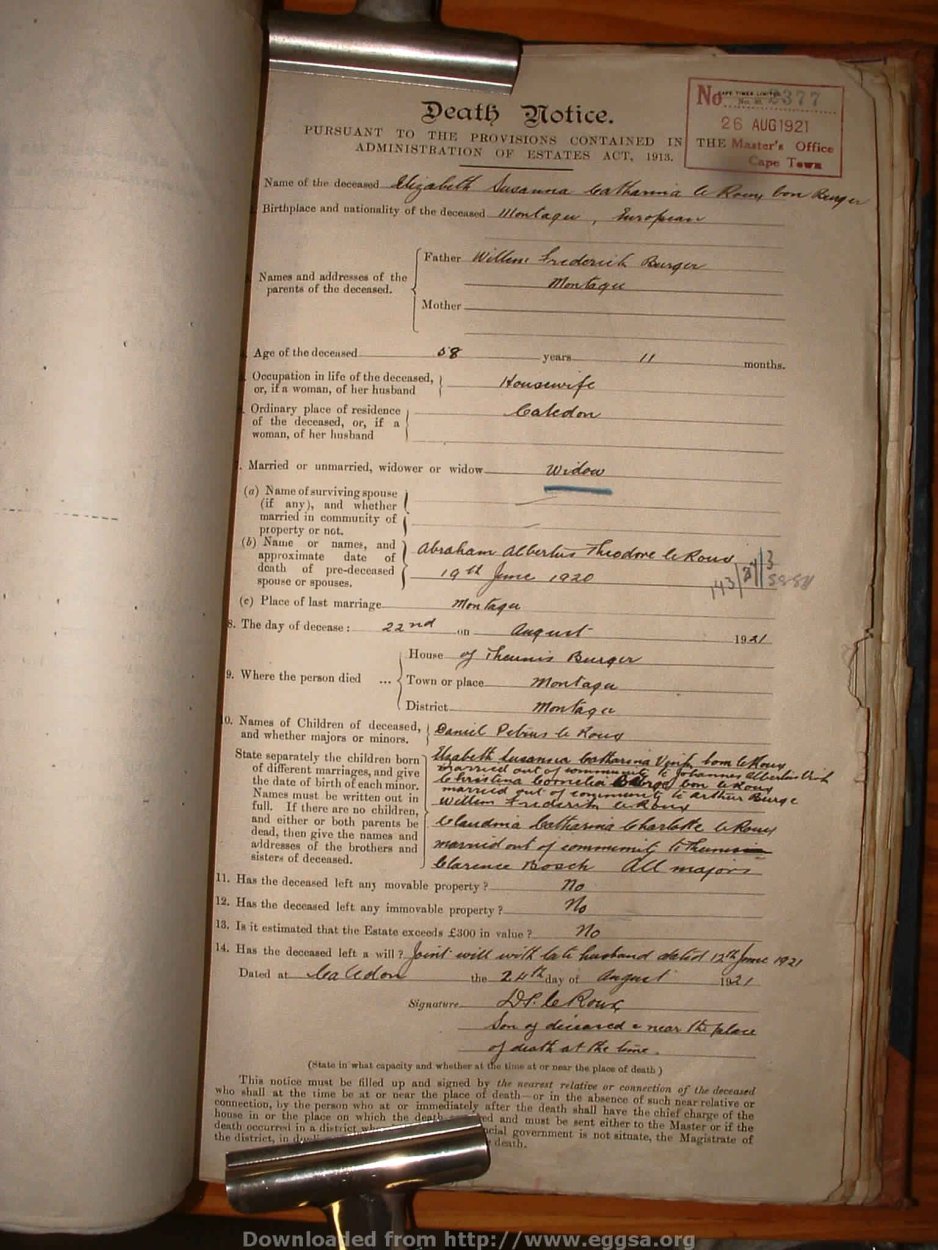 Death Notice.
No 2377
CAPE TIMES LIMITED
26 AUG 1921
Master's Office
Cape Town
PURSUANT TO THE PROVISIONS CONTAINED IN THE
ADMINISTRATION OF ESTATES ACT, 1913.
Name of the deceased Elizabeth Susanna Catharina le Roux born Burger
Birthplace and nationality of the deceased Montagu, European
Names and addresses of the parents of the deceased.
Father Willem Frederick Burger
Montagu
Mother
Age of the deceased 58 years 11 months.
Occupation in life of the deceased, or, if a woman, of her husband
Housewife
Ordinary place of residence of the deceased, or, if a woman, of her husband
Caledon
Married or unmarried, widower or widow Widow
(a) Name of surviving spouse (if any), and whether married in community of property or not.
(b) Name or names, and approximate date of death of pre-deceased spouse or spouses.
Abraham Albertus Theodore le Roux
19th June 1920
(c) Place of last marriage Montagu
8. The day of decease: 22nd on August 1921
9. Where the person died ...
House of Theunis Burger
Town or place Montagu
District Montagu
10. Names of Children of deceased, and whether majors or minors.
State separately the children born of different marriages, and give the date of birth of each minor. Names must be written out in full. If there are no children, and either or both parents be dead, then give the names and addresses of the brothers and sisters of deceased.
Daniel Petrus le Roux
Elizabeth Susanna Catharina born le Roux
married out of community to Johannes Albertus
Christina Cornelia born le Roux
married out of community to Arthur Burge
Willem Frederick le Roux
Claudina Catharina Charlotte le Roux
married out of community to
Clarence Bosch All majors
11. Has the deceased left any movable property? No
12. Has the deceased left any immovable property? No
13. Is it estimated that the Estate exceeds £300 in value? No
14. Has the deceased left a will? Joint will with late husband dated 12th June 1921
Dated at Caledon the 24th day of August 1921
Signature D.P. le Roux
Son of deceased & near the place
of death at the time.
(State in what capacity and whether at the time at or near the place of death)
This notice must be filled up and signed by the nearest relative or connection of the deceased
who shall at the time be at or near the place of death—or in the absence of such near relative or
connection, by the person who at or immediately after the death shall have the chief charge of the
house in or the place on which the death and must be sent either to the Master or if the
death occurred in a district government is not situate, the Magistrate of
the district, in death.
Downloaded from http://www.eggsa.org